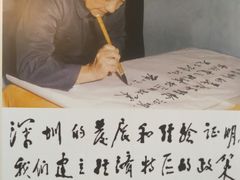 深圳的发展和经验证明，
我们建立经济特区的政策